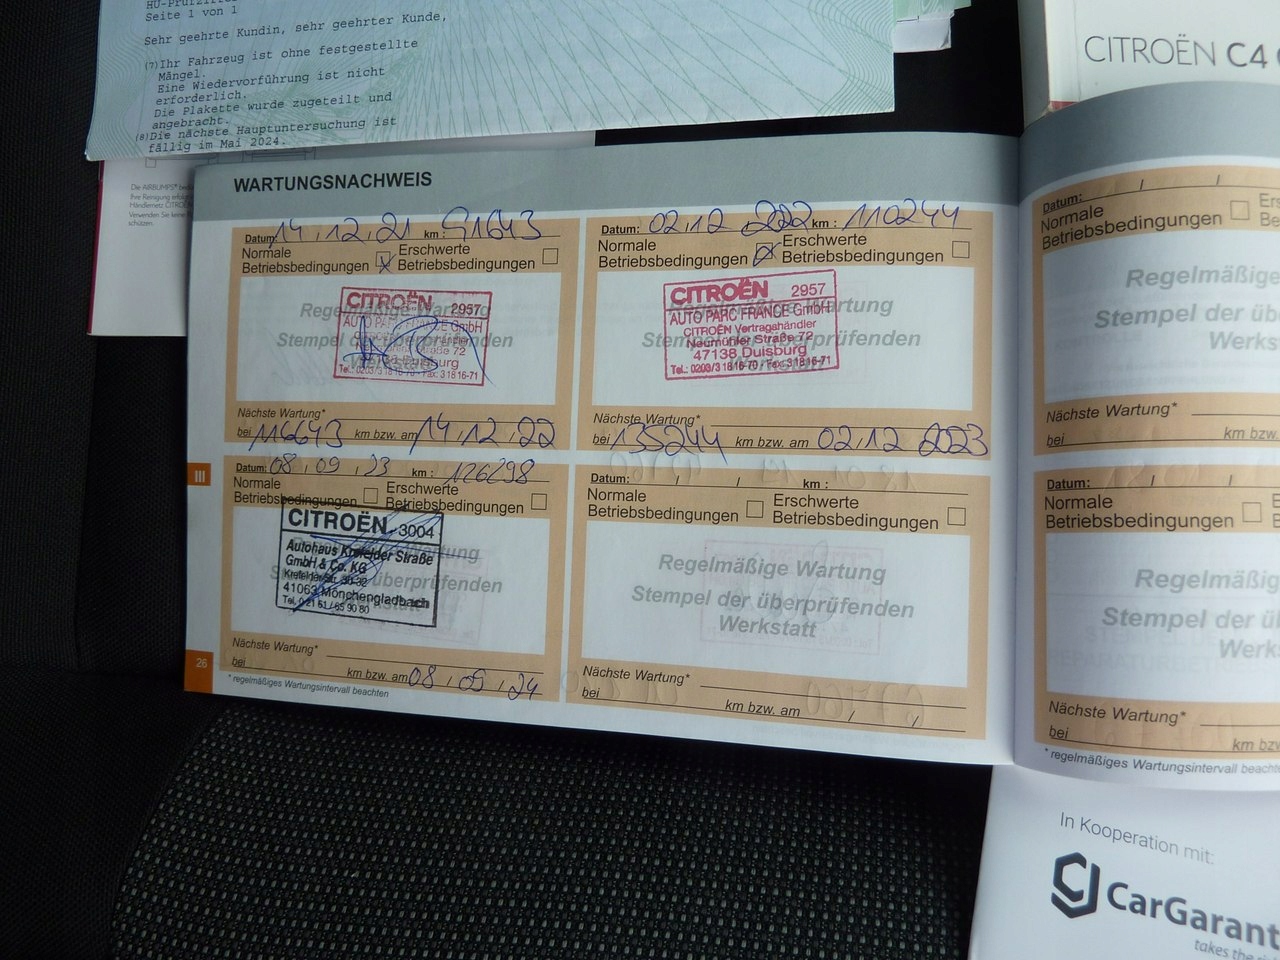 HU-Prüfziffer
Seite 1 von 1
Sehr geehrte Kundin, sehr geehrter Kunde,
(7)Ihr Fahrzeug ist ohne festgestellte
Mängel.
Eine Wiedervorführung ist nicht
erforderlich.
Die Plakette wurde zugeteilt und
angebracht.
(8)Die nächste Hauptuntersuchung ist
fällig im Mai 2024.
CITROËN C4
Die AIRBUMPS®
Ihre Reinigung
Händlernetz CITROËN
Verwenden Sie keine
schützen.
WARTUNGSNACHWEIS
Datum: 14.12.21 km: 91643
Normale Betriebsbedingungen
Erschwerte Betriebsbedingungen
Regelmäßige Wartung
Stempel der überprüfenden
Werkstatt
CITROËN 2957
AUTO PARC FRANCE GmbH
CITROËN Vertragshändler
Neumühler Straße 72
47138 Duisburg
Tel.: 0203/3 18 16-70 · Fax: 3 18 16-71
Nächste Wartung*
bei 116643 km bzw. am 14.12.22
Datum: 02.12 2022 km: 110244
Normale Betriebsbedingungen
Erschwerte Betriebsbedingungen
Regelmäßige Wartung
Stempel der überprüfenden
Werkstatt
CITROËN 2957
AUTO PARC FRANCE GmbH
CITROËN Vertragshändler
Neumühler Straße 72
47138 Duisburg
Tel.: 0203/3 18 16-70 · Fax: 3 18 16-71
Nächste Wartung*
bei 135244 km bzw. am 02.12 2023
III
Datum: 08.09.23 km: 126298
Normale Betriebsbedingungen
Erschwerte Betriebsbedingungen
Wartung
Stempel der überprüfenden
CITROËN 3004
Autohaus Krefelder Straße
GmbH & Co. KG
Krefelder Str. 30-32
41063 Mönchengladbach
Tel. 0 21 61 / 65 90 80
Nächste Wartung*
bei km bzw. am 08.09.24
* regelmäßiges Wartungsintervall beachten
26
Datum: / / km:
Normale Betriebsbedingungen
Erschwerte Betriebsbedingungen
Regelmäßige Wartung
Stempel der überprüfenden
Werkstatt
Nächste Wartung*
bei km bzw. am / /
Datum: / /
Normale
Betriebsbedingungen
Regelmäßige
Stempel der
Werkst
Nächste Wartung*
bei km bzw.
Datum: / /
Normale
Betriebsbedingungen
Regelmäßig
Stempel der
Werks
Nächste Wartung*
bei km bzw
* regelmäßiges Wartungsintervall beachte
In Kooperation mit:
CarGarant
takes the